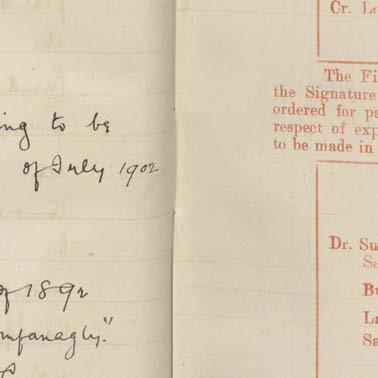 ing to be
of July 1902
of 1892
Cr. Lo
The Fi
the Signature
ordered for pa
respect of exp
to be made in
Dr. Su
Sa
Bu
La
Sa